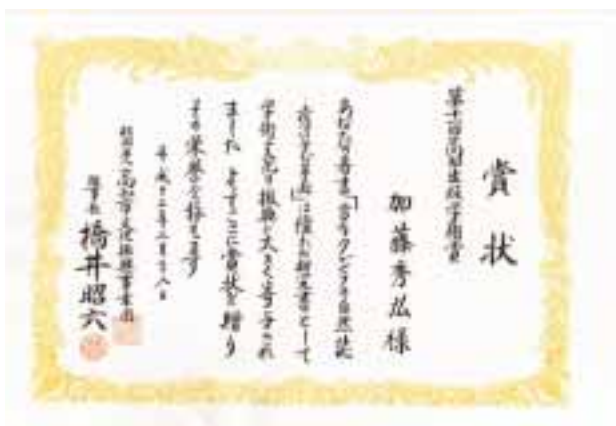 賞状
第十回高知出版学術賞
加藤秀弘様
あなたの著書「
自然誌
」は優れた研究書として
学術文化の振興に大きく寄与され
ました よってここに賞状を贈り
その栄誉を称えます
平成十二年三月十八日
高知市文化振興事業団
理事長 橋井昭六